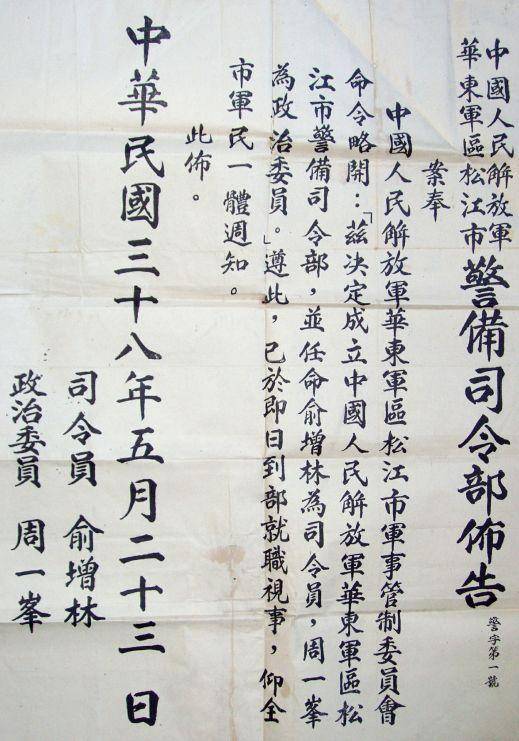 中國人民解放軍
華東軍區松江市
警備司令部佈告
警字第一號
案奉
中國人民解放軍華東軍區松江市軍事管制委員會
命令略開：「茲決定成立中國人民解放軍華東軍區松
江市警備司令部，並任命俞增林為司令員，周一峯
為政治委員。」遵此，已於即日到部就職視事，仰全
市軍民一體週知。
此佈。
中華民國三十八年五月二十三日
司令員 俞增林
政治委員 周一峯